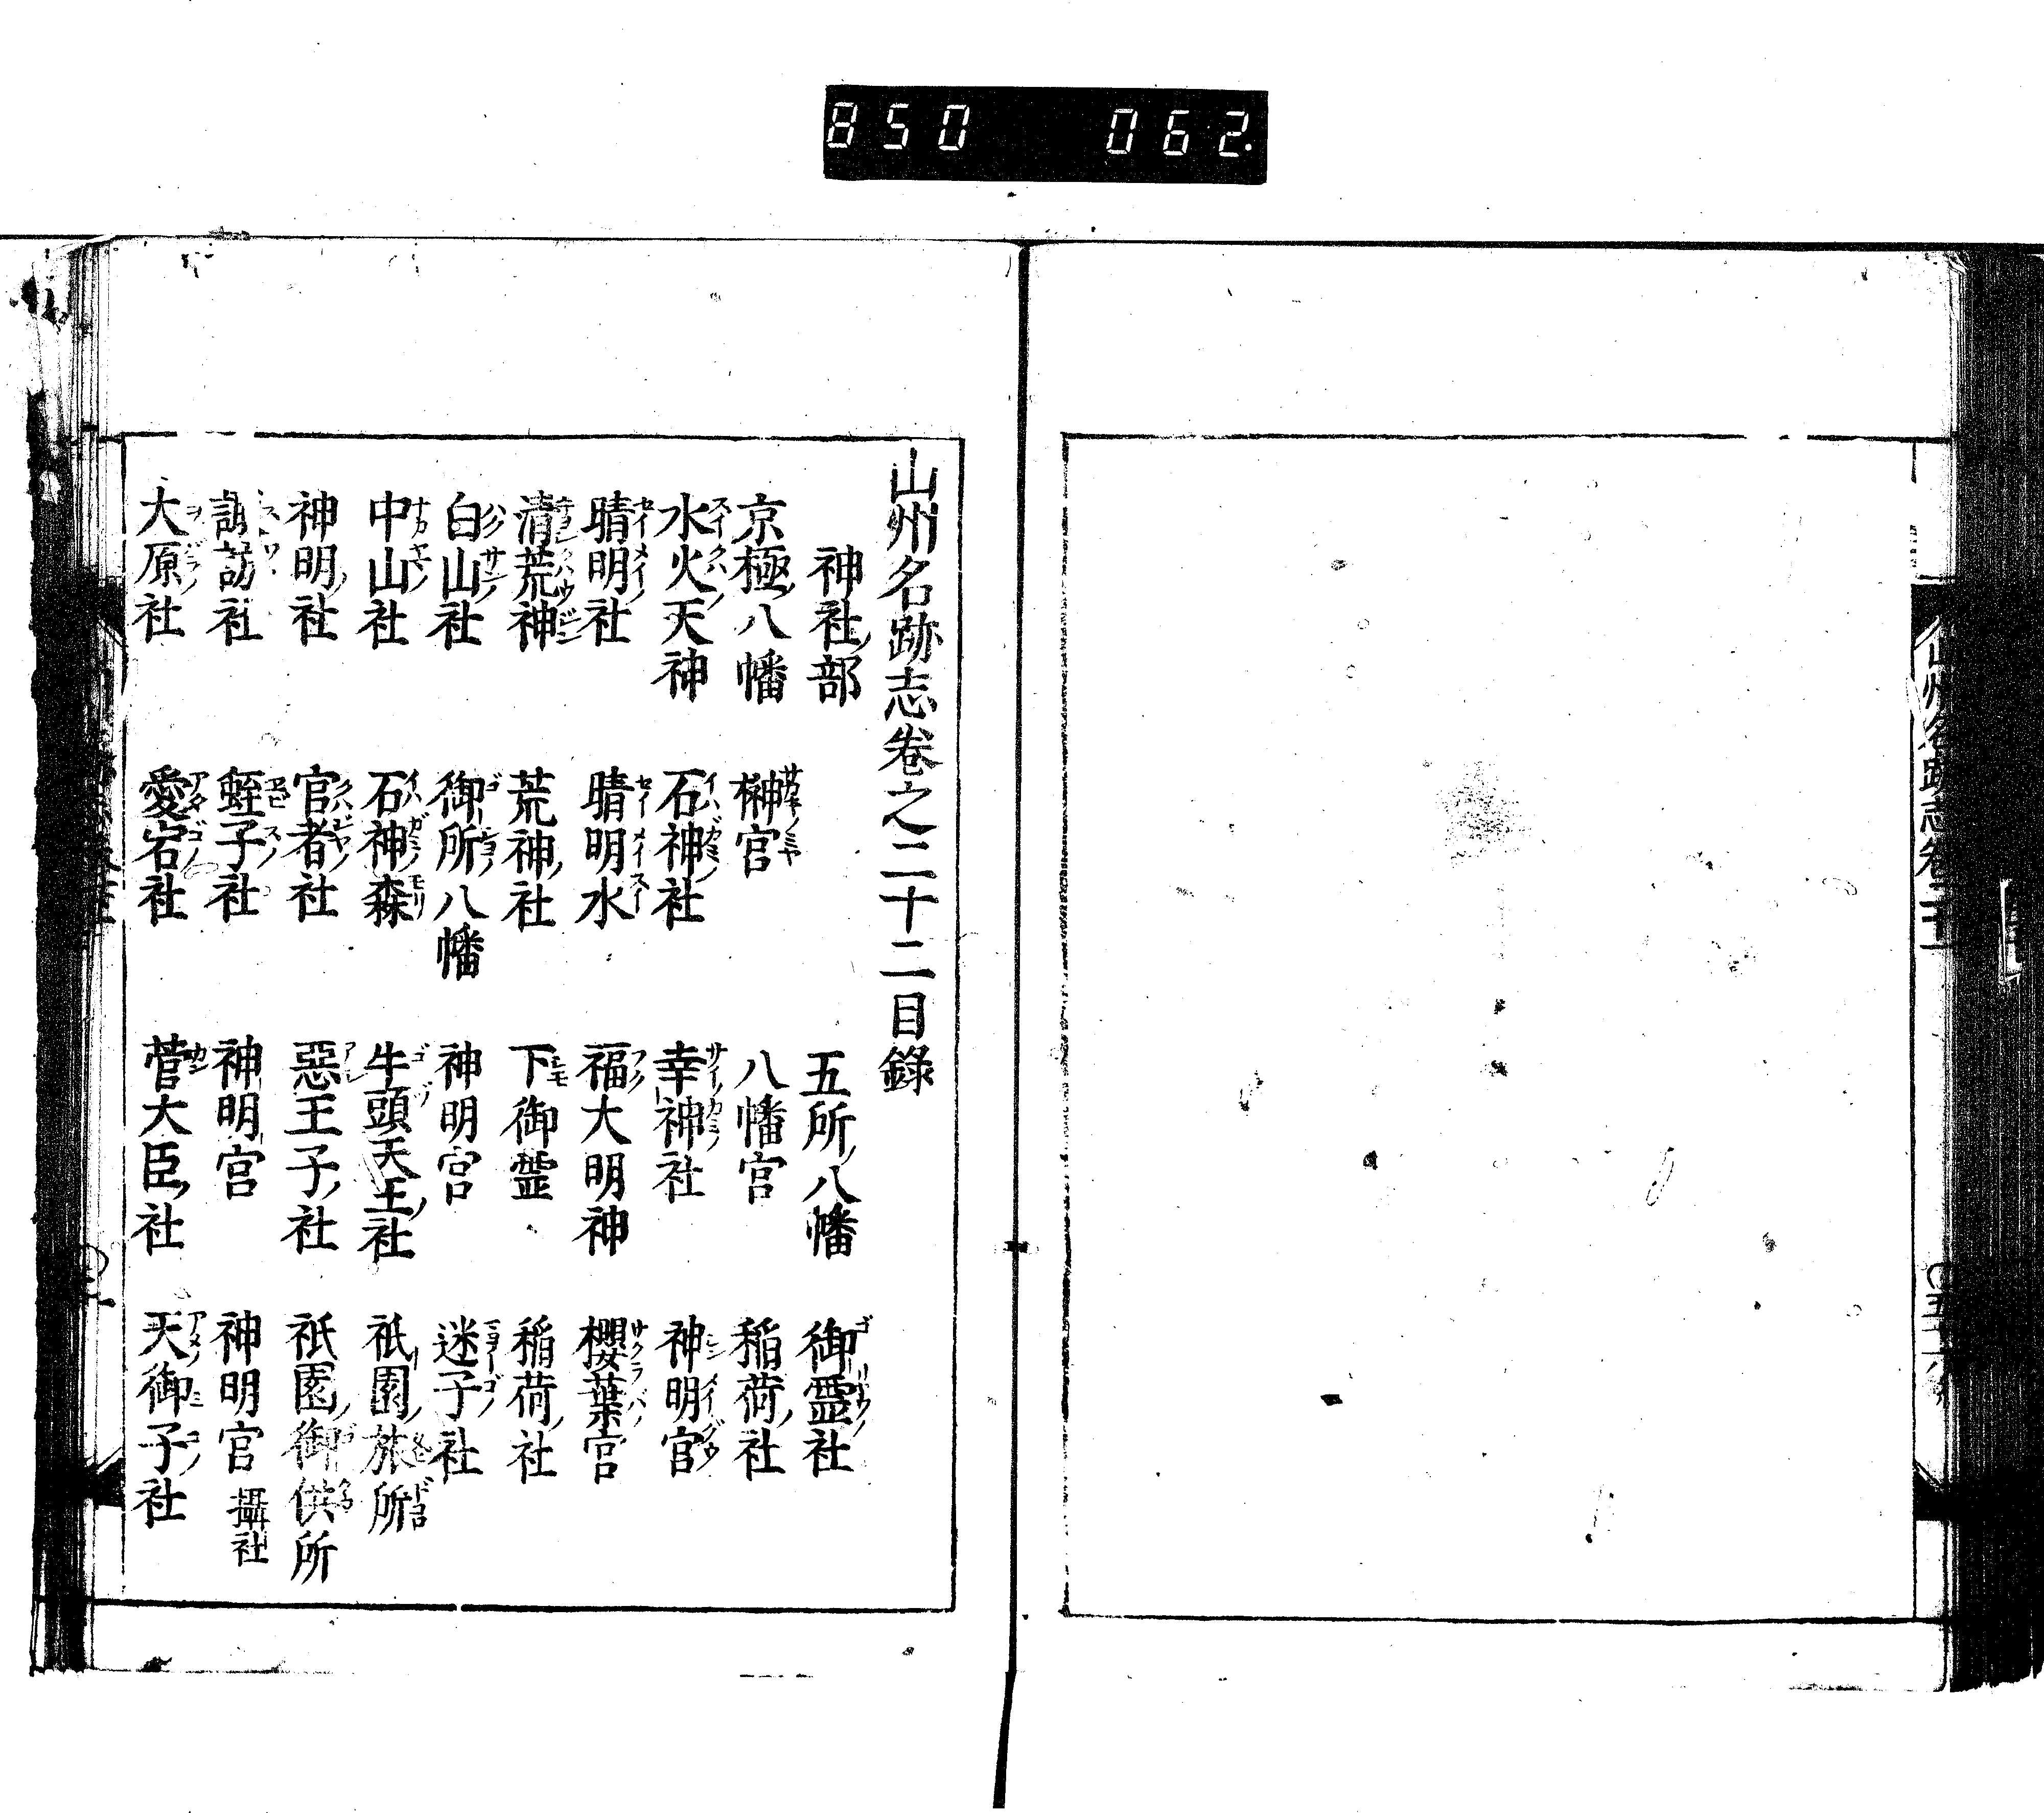 850 062
山州名跡志卷之二十二目錄
神社ノ部 五所ノ八幡 御霊社
京極ノ八幡 榊宮 八幡宮 稲荷ノ社
水火天神 石神社 幸神社 神明宮
晴明社 晴明水 福大明神 櫻葉宮
清荒神 荒神ノ社 下御霊 稲荷ノ社
白山社 御所八幡 神明宮 迷子社
中山社 石神森 牛頭天王ノ社 祇園ノ旅所
神明ノ社 官者社 惡王子ノ社 祇園ノ御供所
諏訪社 蛭子社 神明宮 神明宮 攝社
大原社 愛宕社 菅大臣ノ社 天御子社